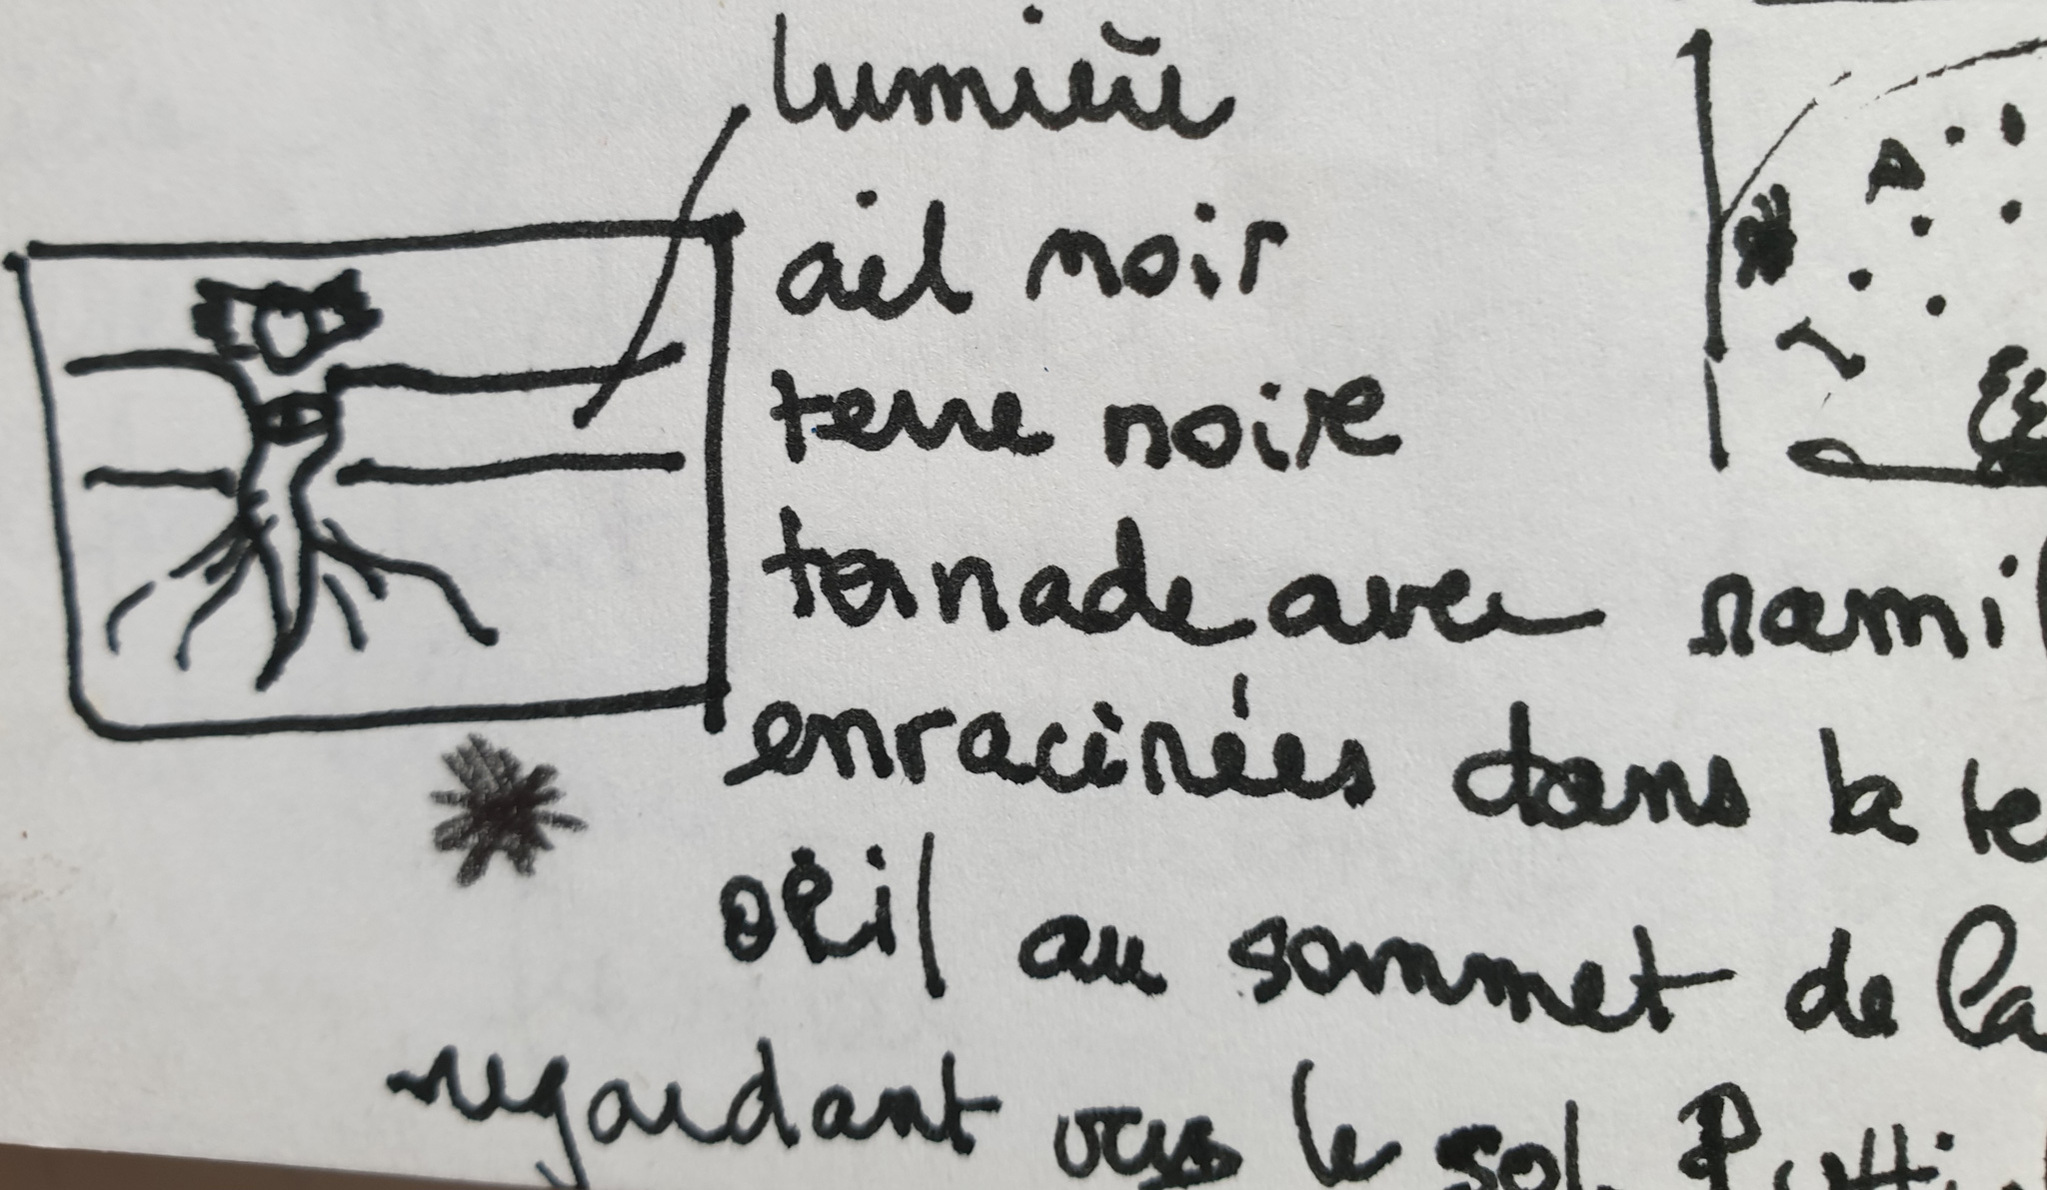 lumière
ail noir
terre noire
tornade avec rami
enracinées dans la te
oeil au sommet de la
regardant vers le sol.